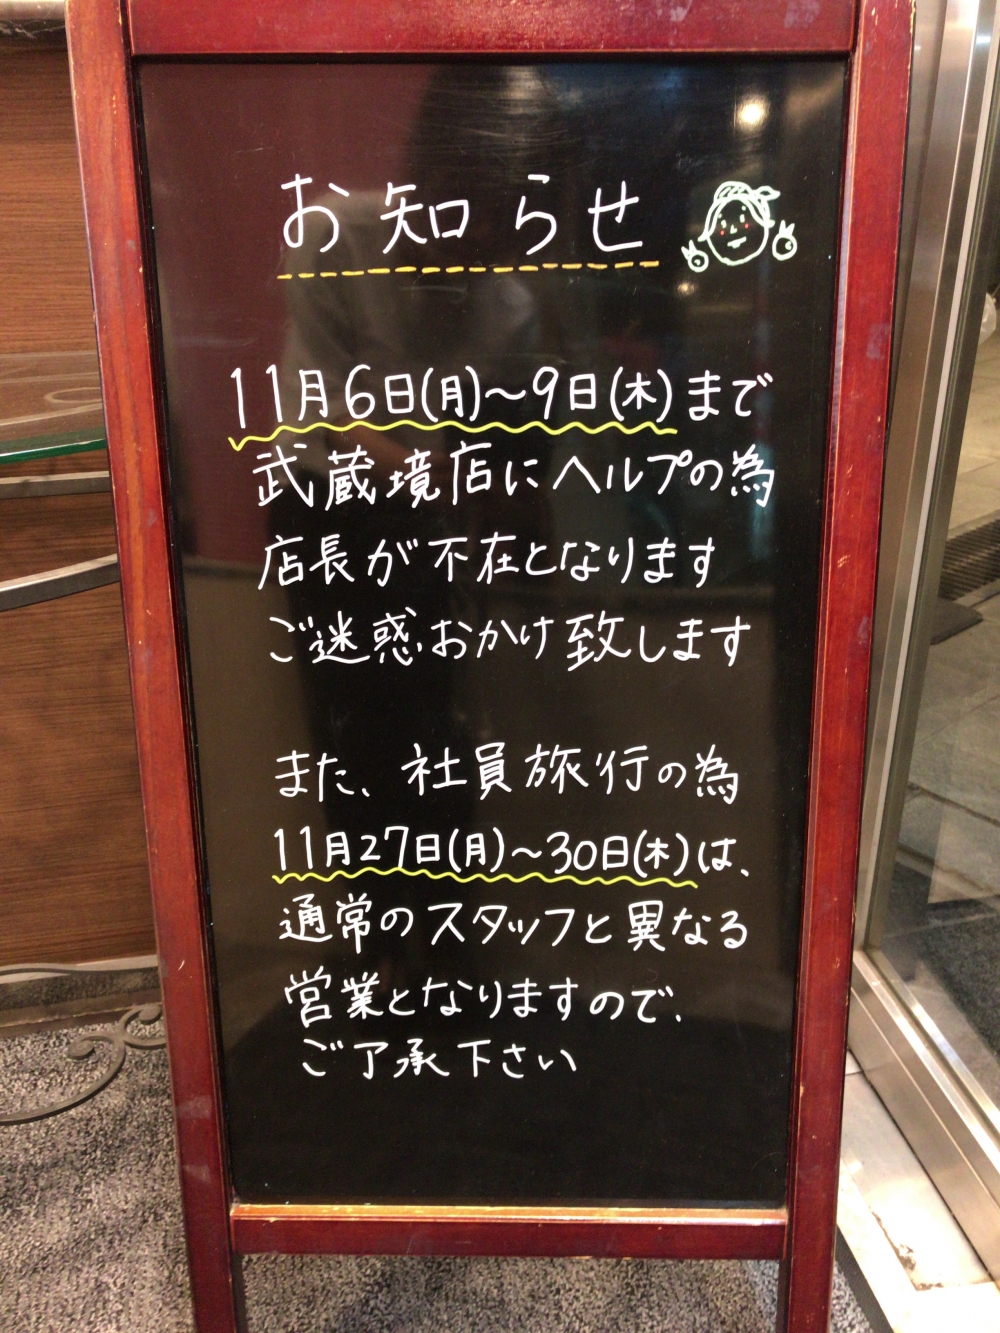 お知らせ
11月6日(月)〜9日(木)まで
武蔵境店にヘルプの為
店長が不在となります
ご迷惑おかけ致します
また、社員旅行の為
11月27日(月)〜30日(木)は、
通常のスタッフと異なる
営業となりますので、
ご了承下さい